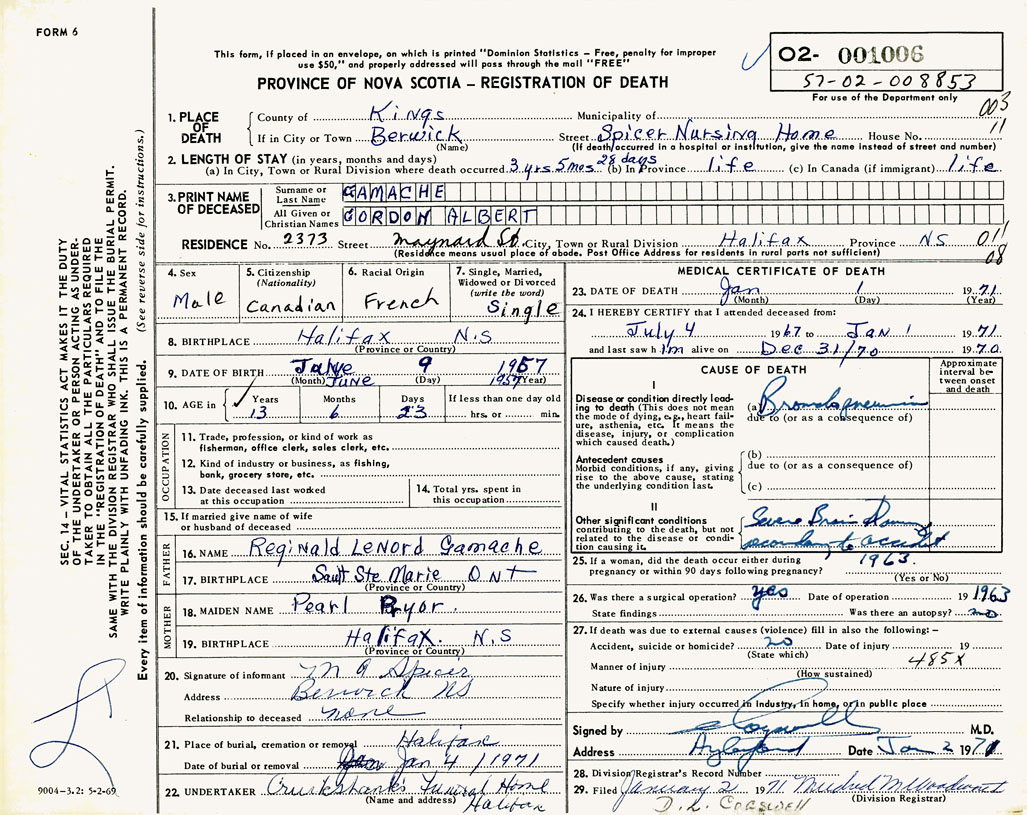 FORM 6
This form, if placed in an envelope, on which is printed "Dominion Statistics – Free, penalty for improper
use $50," and properly addressed will pass through the mail "FREE"
PROVINCE OF NOVA SCOTIA – REGISTRATION OF DEATH
02- 001006
57-02-008853
For use of the Department only
003
11
1. PLACE OF DEATH
County of Kings Municipality of
If in City or Town Berwick Street Spicer Nursing Home House No.
(Name) (If death occurred in a hospital or institution, give the name instead of street and number)
2. LENGTH OF STAY (in years, months and days)
(a) In City, Town or Rural Division where death occurred 3 yrs 5 mos 28 days (b) In Province life (c) In Canada (if immigrant) life
3. PRINT NAME OF DECEASED
Surname or Last Name GAMACHE
All Given or Christian Names GORDON ALBERT
RESIDENCE No. 2373 Street Maynard St. City, Town or Rural Division Halifax Province NS
(Residence means usual place of abode. Post Office Address for residents in rural parts not sufficient)
011
08
4. Sex
Male
5. Citizenship
(Nationality)
Canadian
6. Racial Origin
French
7. Single, Married,
Widowed or Divorced
(write the word)
Single
8. BIRTHPLACE Halifax N.S
(Province or Country)
9. DATE OF BIRTH June 9 1957
(Month) June (Day) 1957 (Year)
10. AGE in
Years 13
Months 6
Days 23
If less than one day old
hrs. or min.
OCCUPATION
11. Trade, profession, or kind of work as
fisherman, office clerk, sales clerk, etc.
12. Kind of industry or business, as fishing,
bank, grocery store, etc.
13. Date deceased last worked
at this occupation
14. Total yrs. spent in
this occupation
15. If married give name of wife
or husband of deceased
FATHER
16. NAME Reginald Lenord Gamache
17. BIRTHPLACE Sault Ste Marie ONT
(Province or Country)
MOTHER
18. MAIDEN NAME Pearl Pryor.
19. BIRTHPLACE Halifax. N.S
(Province or Country)
20. Signature of informant M A Spicer
Address Berwick NS
Relationship to deceased none
21. Place of burial, cremation or removal Halifax
Date of burial or removal Jan 4 / 1971
22. UNDERTAKER Cruikshanks Funeral Home
(Name and address) Halifax
MEDICAL CERTIFICATE OF DEATH
23. DATE OF DEATH Jan 1 19 71
(Month) (Day) (Year)
24. I HEREBY CERTIFY that I attended deceased from:
July 4 1967 to Jan 1 19 71
and last saw him alive on Dec 31/70 19 70
CAUSE OF DEATH
Approximate
interval be-
tween onset
and death
I
Disease or condition directly lead-
ing to death (This does not mean
the mode of dying, e.g., heart fail-
ure, asthenia, etc. It means the
disease, injury, or complication
which caused death.)
(a) Bronchopneumonia
due to (or as a consequence of)
Antecedent causes
Morbid conditions, if any, giving
rise to the above cause, stating
the underlying condition last.
(b)
due to (or as a consequence of)
(c)
II
Other significant conditions
contributing to the death, but not
related to the disease or condi-
tion causing it.
Severe Brain Damage
secondary to accident
1963.
25. If a woman, did the death occur either during
pregnancy or within 90 days following pregnancy?
(Yes or No)
26. Was there a surgical operation? yes Date of operation 19 1963
State findings Was there an autopsy? no
27. If death was due to external causes (violence) fill in also the following:–
Accident, suicide or homicide? no Date of injury 19
(State which)
485X
Manner of injury
(How sustained)
Nature of injury
Specify whether injury occurred in industry, in home, or in public place
Signed by M.D.
Address Aylesford Date Jan 2 1971
28. Division Registrar's Record Number
29. Filed January 2 1971 Mildred M Woodworth
(Division Registrar)
D. L. COGSWELL
SEC. 14 – VITAL STATISTICS ACT MAKES IT THE DUTY
OF THE UNDERTAKER OR PERSON ACTING AS UNDER-
TAKER TO OBTAIN ALL THE PARTICULARS REQUIRED
IN THE "REGISTRATION OF DEATH" AND FILE THE
SAME WITH THE DIVISION REGISTRAR WHO SHALL ISSUE THE BURIAL PERMIT.
WRITE PLAINLY WITH UNFADING INK. THIS IS A PERMANENT RECORD.
Every item of information should be carefully supplied. (See reverse side for instructions.)
9004–3.2: 5-2-69